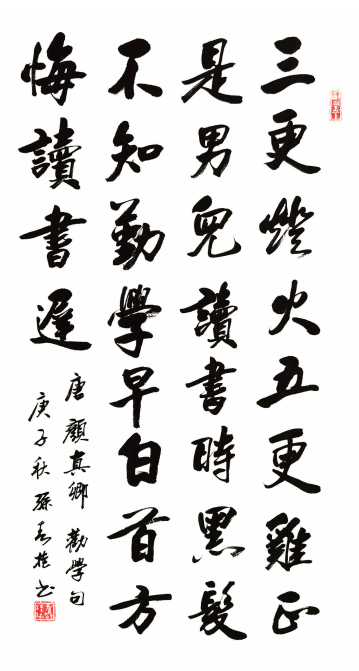 三更燈火五更雞正
是男兒讀書時黑髮
不知勤學早白首方
悔讀書遲
唐顏真卿勸學句
庚子秋孫书